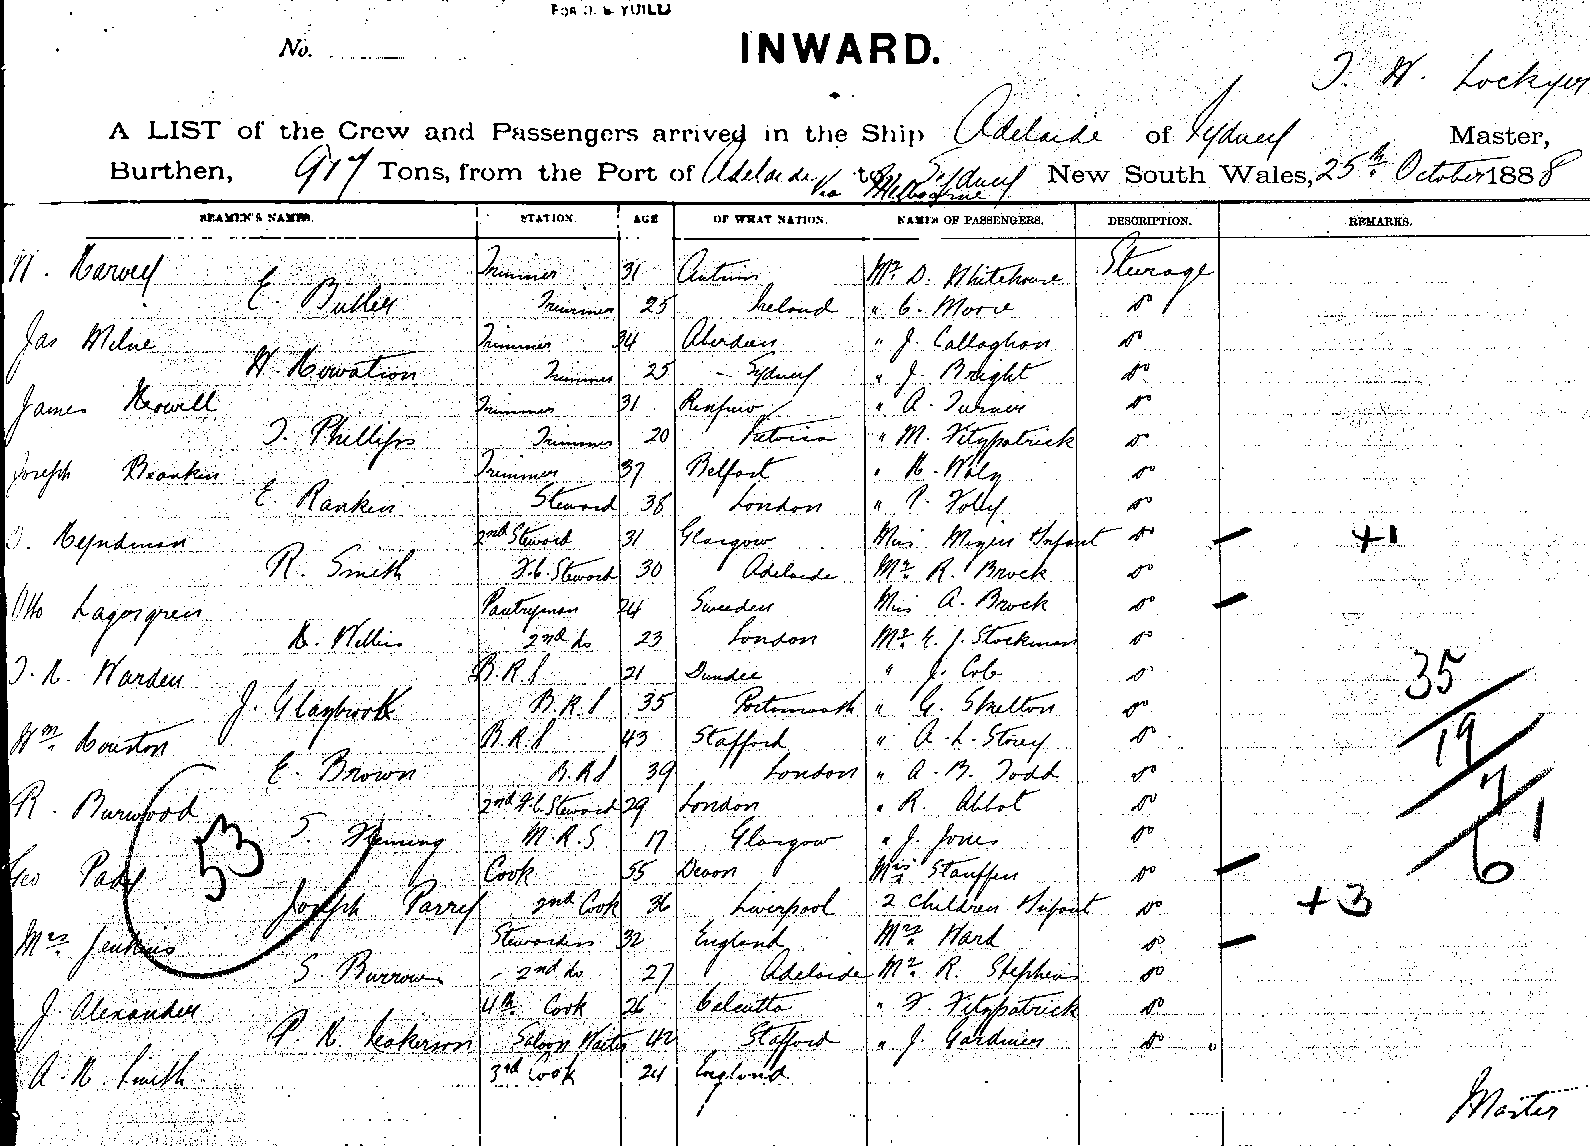 FOR J. & YUILL
No.
INWARD.
T. H. Lockyer
A LIST of the Crew and Passengers arrived in the Ship Adelaide of Sydney Master,
Burthen, 917 Tons, from the Port of Adelaide via Melbourne to Sydney New South Wales, 25th October 1888
SEAMEN'S NAMES. STATION. AGE OF WHAT NATION. NAMES OF PASSENGERS. DESCRIPTION. REMARKS.
H. Harvey Trimmer 31 Antrim Mr. D. Whitehouse Steerage
E. Butler Trimmer 25 Ireland " C. Moore do
Jas Milne Trimmer 34 Aberdeen " J. Callaghan do
H. Howation Trimmer 25 Sydney " J. Bright do
James Howell Trimmer 31 Renfrew " A. Turner do
T. Phillips Trimmer 20 " M. Fitzpatrick do
Joseph Trimmer 37 Belfast " H. do
E Rankin Steward 38 London " P. Foley do
Hyndman 2nd Steward 31 Glasgow Infant do +1
R. Smith F.C. Steward 30 Adelaide Mr. R. Brock do
Otto Lagergren Pantryman 24 Sweden Miss A. Brock do
H. Willis 2nd do 23 London Mr. E. J. Stockman do
J. H. Warden B.R.S 21 Dundee " J. Cole do
J. Glaybrook B.R.S 35 Portsmouth " G. Skelton do
35
Wm. Houston B.R.S 43 Stafford " A. L. Storey do
19
E. Brown B.R.S 39 London " A. B. Todd do
7
R. Burwood 2nd F.C. Steward 29 London " R. Abbot do
1
53
S. Fleming M.R.S. 17 Glasgow " J. Jones do
Geo Cook 55 Devon Mrs Stauffen do
6
Joseph Parry 2nd Cook 36 Liverpool 2 Children & Infant do +3
Mrs. Jenkins Stewardess 32 England Mrs. Ward do
S. Burrows 2nd do 27 Adelaide Mr. R. Stephens do
J. Alexander 4th Cook 26 Calcutta " F. Fitzpatrick do
P. H. Saloon Waiter 42 Stafford " J. Gardiner do
A. H. Smith 3rd Cook 24 England
Master